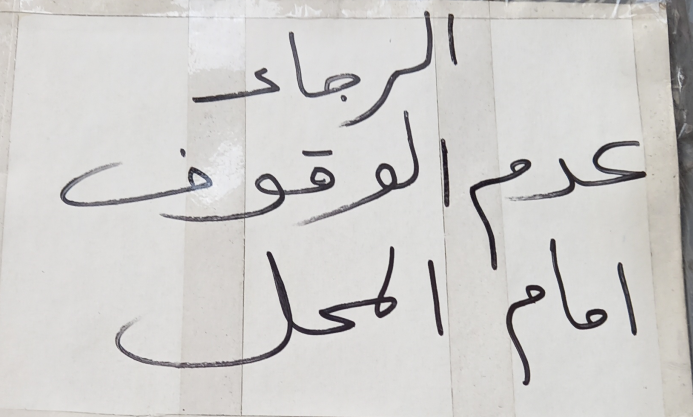 الرجاء
عدم الوقوف
امام المحل